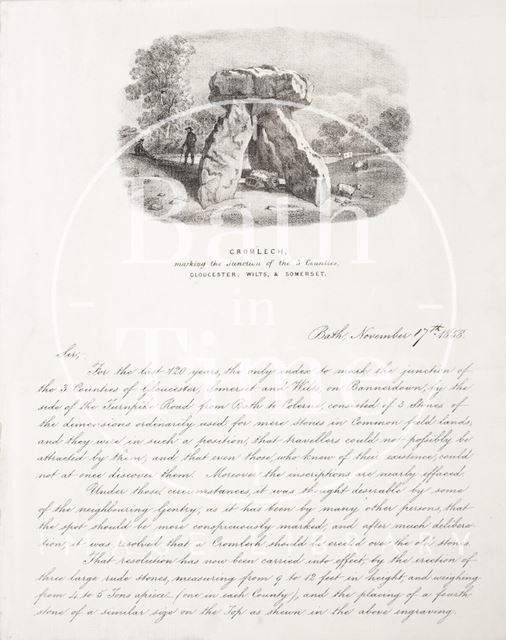 CROMLECH,
marking the Junction of the 3 Counties,
GLOUCESTER, WILTS, & SOMERSET.
Bath, November 17th 1858.
Sir,
For the last 120 years, the only index to mark the junction of
the 3 Counties of Gloucester, Somerset and Wilts on Bannerdown, by the
side of the Turnpike Road from Bath to Colerne, consisted of 3 stones of
the dimensions ordinarily used for mere stones in Common field lands,
and they were in such a position, that travellers could not possibly be
attracted by them, and that even those, who knew of their existence, could
not at once discover them. Moreover the inscriptions are nearly effaced.
Under those, circumstances, it was thought desirable by some
of the neighbouring Gentry, as it has been by many other persons, that
the spot should be more conspicuously marked, and after much delibera-
tion, it was resolved that a Cromlech should be erected over the old stones.
That resolution has now been carried into effect, by the erection of
three large rude stones, measuring from 9 to 12 feet in height, and weighing
from 4 to 5 Tons apiece (one in each County), and the placing of a fourth
stone of a similar size on the Top as shewn in the above engraving.
Bath
in
Time